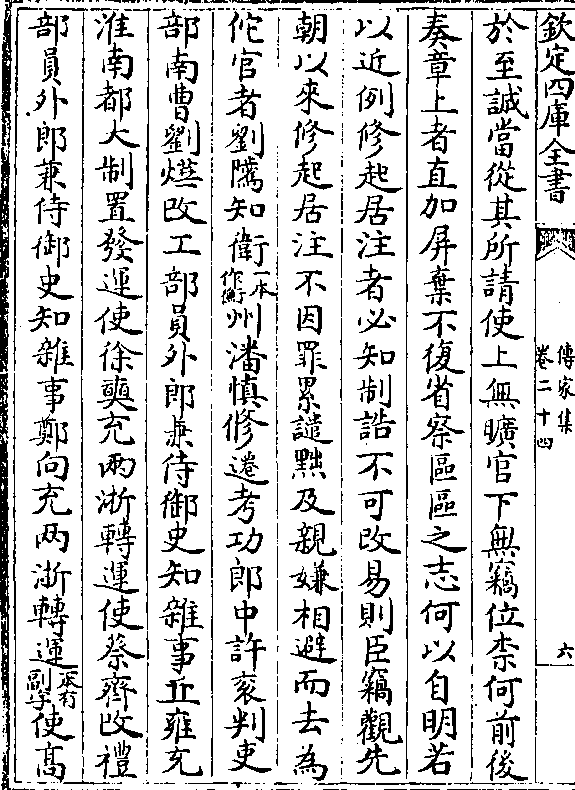 欽定四庫全書
傳家集
卷二十四
六
於至誠當從其所請使上無曠官下無竊位柰何前後
奏章上者直加屏棄不復省察區區之志何以自明若
以近例修起居注者必知制誥不可改易則臣竊觀先
朝以來修起居注不因罪累譴黜及親嫌相避而去為
佗官者劉隲知衛一本作衡州潘慎修遷考功郎中許衮判吏
部南曹劉爗改工部員外郎兼侍御史知雜事丘雍充
淮南都大制置發運使徐奭充兩浙轉運使蔡齊改禮
部員外郎兼侍御史知雜事鄭向充兩浙轉運一本有副字使高